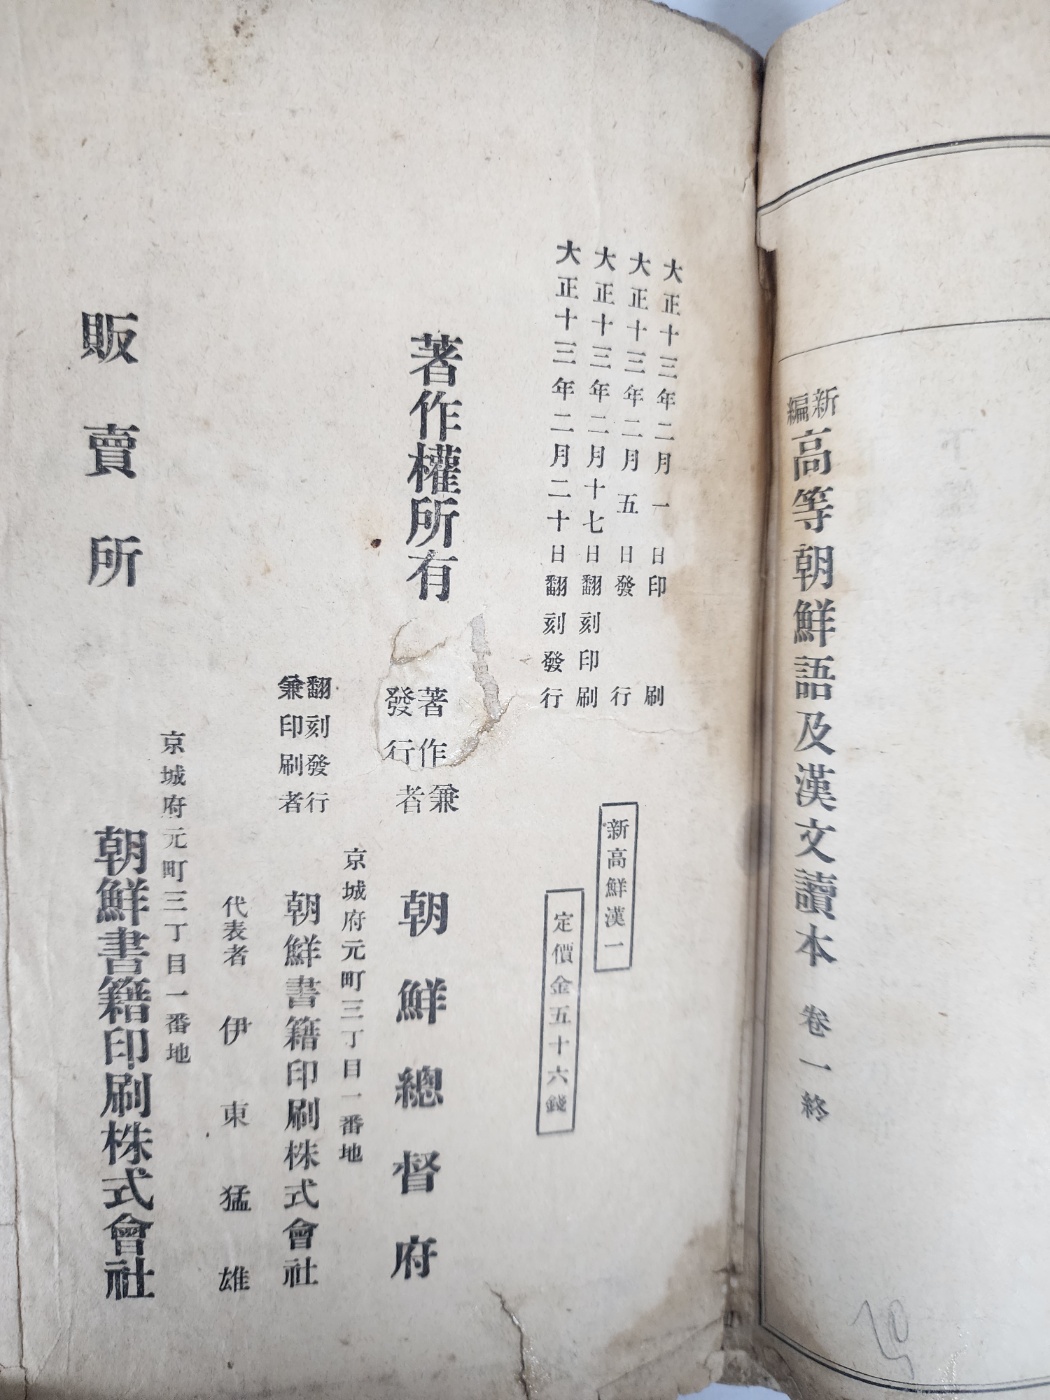 新編高等朝鮮語及漢文讀本 卷一終
大正十三年二月一日印刷
大正十三年二月五日發行
大正十三年二月十七日翻刻印刷
大正十三年二月二十日翻刻發行
新高鮮漢一
定價金五十六錢
著作權所有
著作兼
發行者
朝鮮總督府
京城府元町三丁目一番地
翻刻發行
兼印刷者
朝鮮書籍印刷株式會社
代表者 伊東猛雄
京城府元町三丁目一番地
販賣所
朝鮮書籍印刷株式會社